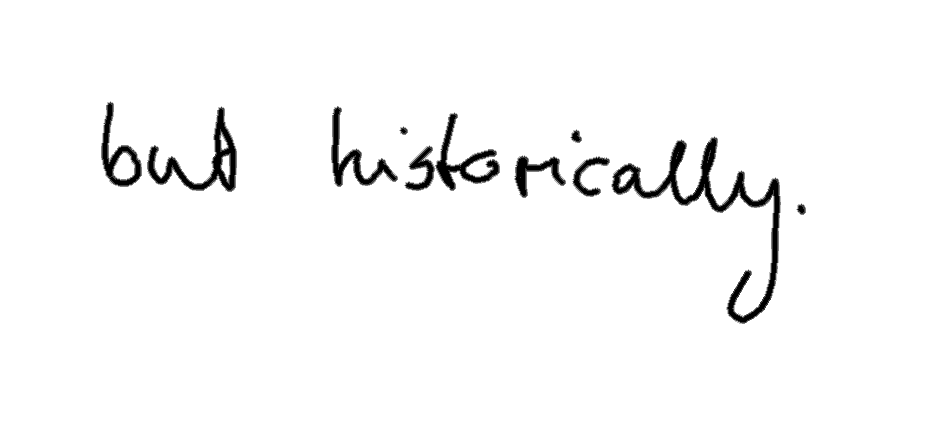 but historically.